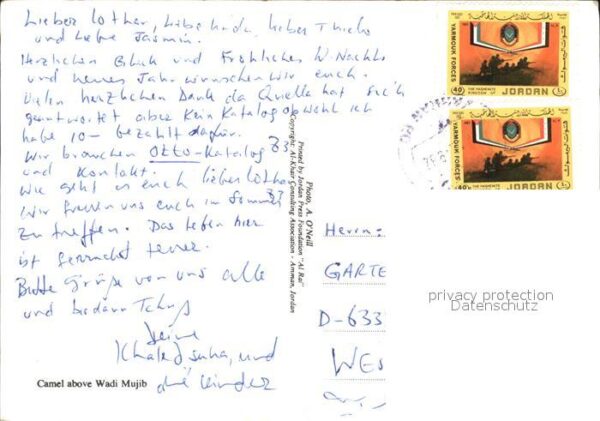 Lieber Lothar, liebe Linda, lieber Thielo
und liebe Jasmin.
Herzlichen Glück und Fröhliches W.Nachts
und neues Jahr wünschen wir euch.
Vielen herzlichen Dank da Quella hat
geantwortet aber kein Katalog obwohl ich
habe 10- bezahlt dafür.
Wir brauchen Otto-Katalog
und Kontakt.
Wie geht es euch lieber Lothar
Wir freuen uns euch im Sommer
zu treffen. Das leben hier
ist teuer.
Grüße von uns alle
und
deine
Khaled und
die kinder
Camel above Wadi Mujib
Photo, A. O'Neill
Printed by Jordan Press Foundation "Al Rai"
Copyright: Al-Khar Consulting Association - Amman, Jordan
YARMOUK FORCES
40
THE HASHEMITE
KINGDOM OF
JORDAN
قوات اليرموك
YARMOUK FORCES
40
THE HASHEMITE
KINGDOM OF
JORDAN
قوات اليرموك
Herrn:
GARTE
D-633
WES
privacy protection
Datenschutz